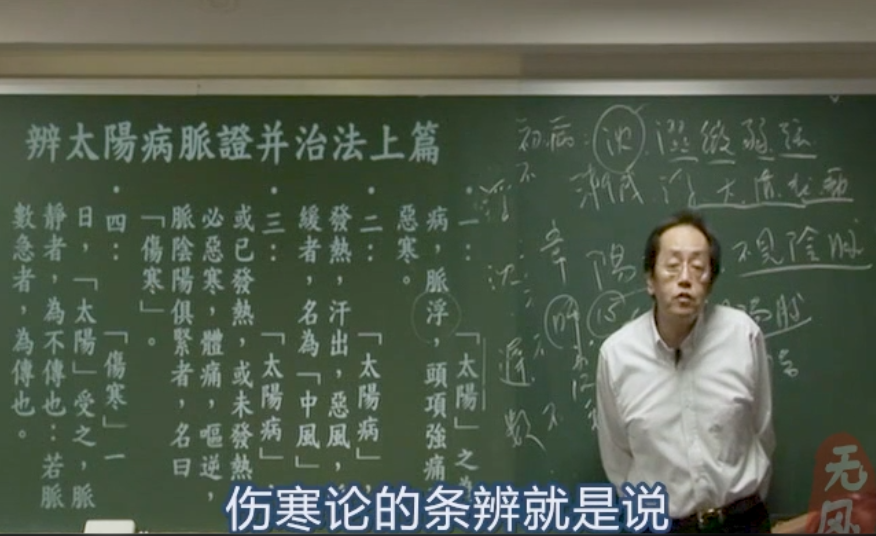 辨太陽病脈證并治法上篇
一：「太陽」之為
病，脈浮，頭項強痛
惡寒。
二：「太陽病」，
發熱，汗出，惡風，
緩者，名為「中風」
三：「太陽病」，
或已發熱，或未發熱
必惡寒，體痛，嘔逆，
脈陰陽俱緊者，名曰
「傷寒」。
四：「傷寒」一
日，「太陽」受之，脈
靜者，為不傳也：若脈
數急者，為傳也。
初病：沉 澀微弱弦
浮大
陽 不見陰脈
伤寒论的条辨就是说
无风